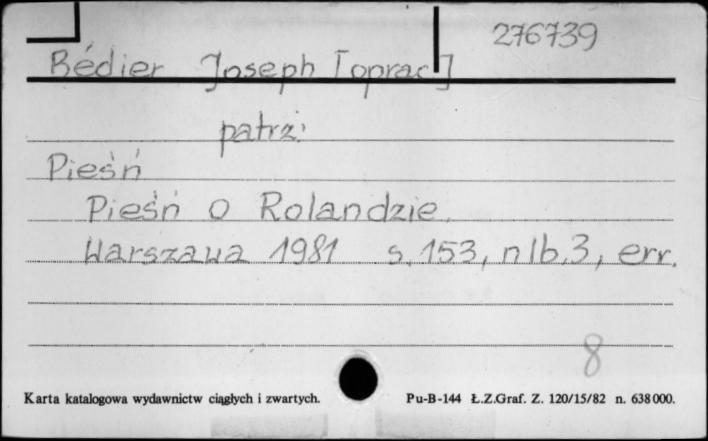 276739
Bédier Joseph [oprac]
patrz:
Pieśń
Pieśń o Rolandzie.
Warszawa 1981 s. 153, nlb. 3, err.
8
Karta katalogowa wydawnictw ciągłych i zwartych. Pu-B-144 Ł.Z.Graf. Z. 120/15/82 n. 638000.